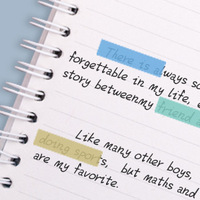 There is always so
forgettable in my life, e
story betweenmy friend
Like many other boys,
doing sports, but maths and
are my favorite.